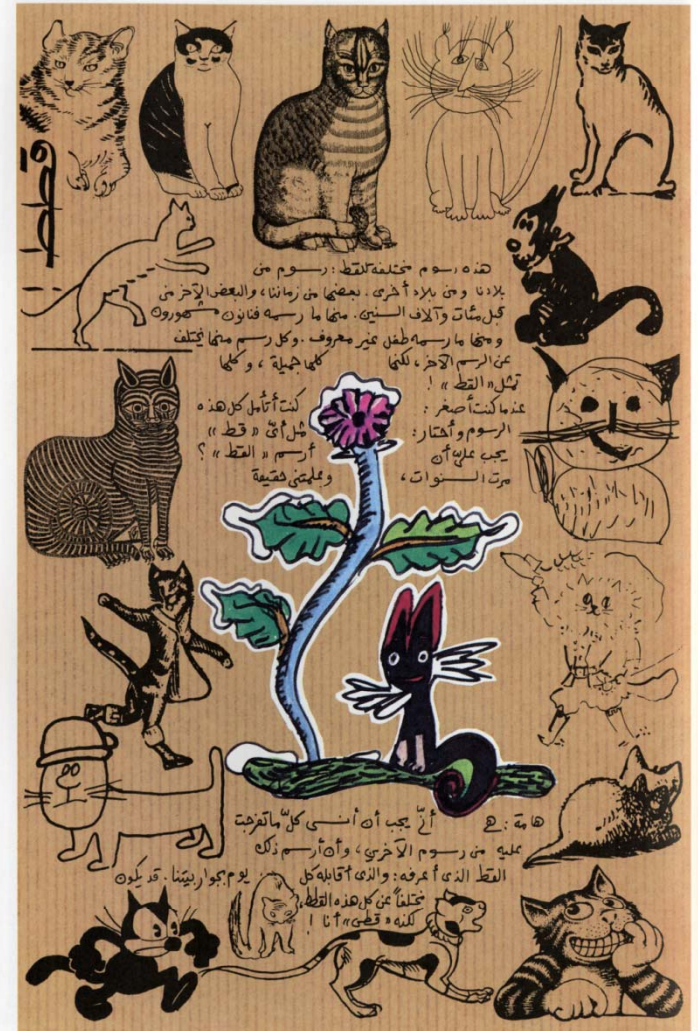 قطط
هذه رسوم مختلفة للقط: رسوم من
بلادنا ومن بلاد أخرى. بعضها من زماننا، والبعض الآخر من
قبل مئات وآلاف السنين. منها ما رسمه فنانون مشهورون
ومنها ما رسمه طفل غير معروف. وكل رسم منها يختلف
عن الرسم الآخر، لكنها كلها جميلة، وكلها
تمثل «القط»!
عندما كنت أصغر: كنت أتأمل كل هذه
الرسوم وأحتار: مثل أىّ «قط»
يجب علىّ أن أرسم «القط»؟
مرت السنوات، وعلمتنى حقيقة
هامة: هى أنّ يجب أن أنسى كلّ ما تفرجت
عليه من رسوم الآخرين، وأن أرسم ذلك
القط الذى أعرفه: والذى أقابله كل يوم بجوار بيتنا. قد يكون
مختلفاً عن كل هذه القطط،
لكنه «قطى» أنا!